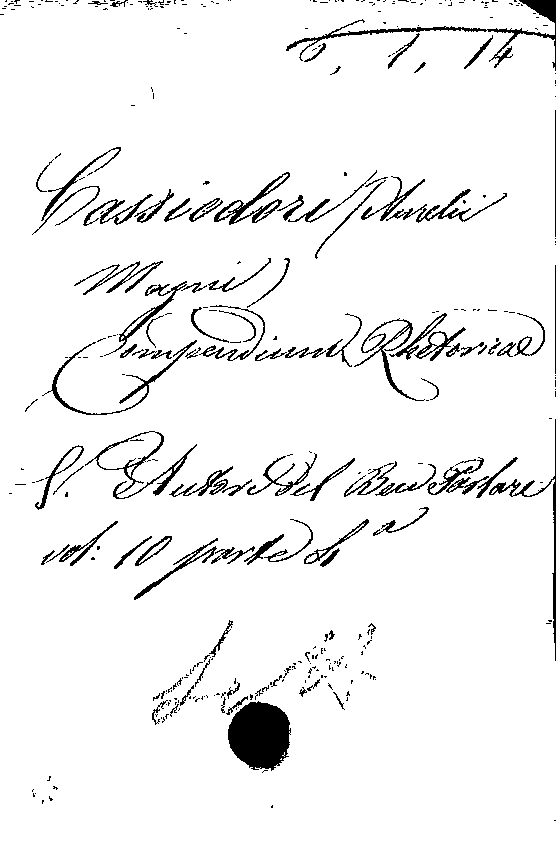 6, 1, 14
Cassiodori (Aurelii
Magni)
Compendium Rhetoricae
S. L'Autore Del Ben Parlare
vol: 10 parte 4ª